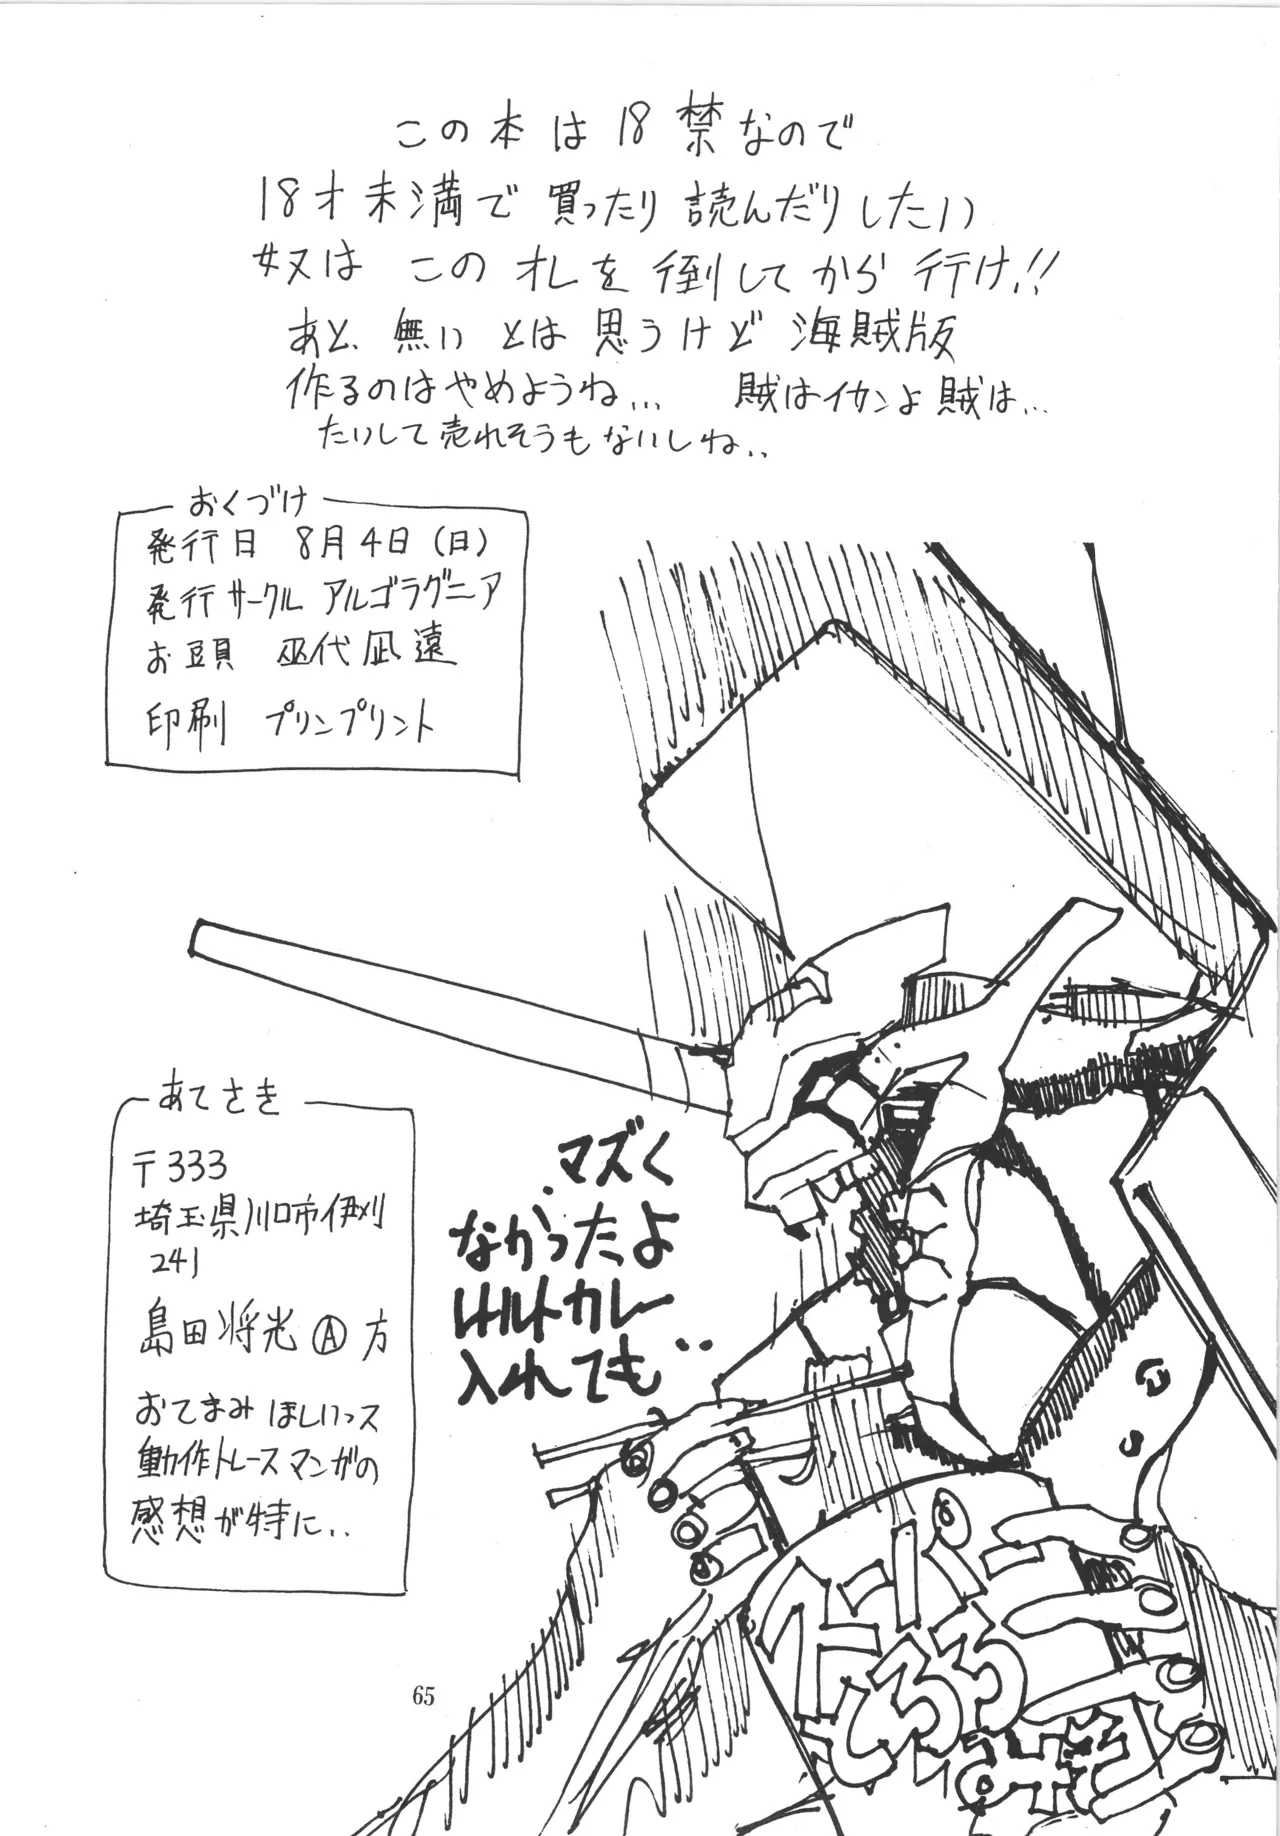 この本は18禁なので
18才未満で買ったり読んだりしたい
奴はこのオレを倒してから行け!!
あと、無いとは思うけど海賊版
作るのはやめようね... 賊はイカンよ賊は...
たいして売れそうもないしね..
おくづけ
発行日 8月4日(日)
発行サークル アルゴラグニア
お頭 巫代凪遠
印刷 プリンプリント
あてさき
〒333
埼玉県川口市伊刈
241
島田将光Ⓐ方
おてまみほしいっス
動作トレースマンガの
感想が特に..
マズく
なかったよ
レトルトカレー
入れても..
65